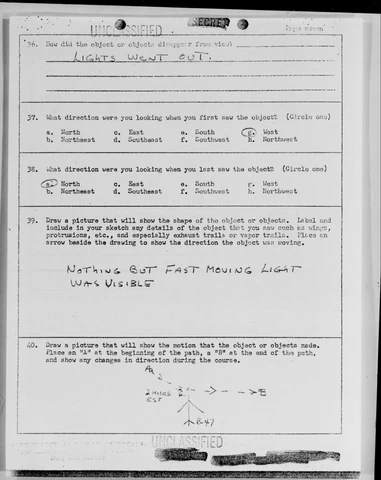 UNCLASSIFIED
SECRET
36. How did the object or objects disappear from view?
LIGHTS WENT OUT.
37. What direction were you looking when you first saw the object? (Circle one)
a. North c. East e. South g. West
b. Northeast d. Southeast f. Southwest h. Northwest
38. What direction were you looking when you last saw the object? (Circle one)
a. North c. East e. South g. West
b. Northeast d. Southeast f. Southwest h. Northwest
39. Draw a picture that will show the shape of the object or objects. Label and
include in your sketch any details of the object that you saw such as wings,
protrusions, etc., and especially exhaust trails or vapor trails. Place an
arrow beside the drawing to show the direction the object was moving.
NOTHING BUT FAST MOVING LIGHT
WAS VISIBLE
40. Draw a picture that will show the motion that the object or objects made.
Place an "A" at the beginning of the path, a "B" at the end of the path,
and show any changes in direction during the course.
B-47
UNCLASSIFIED